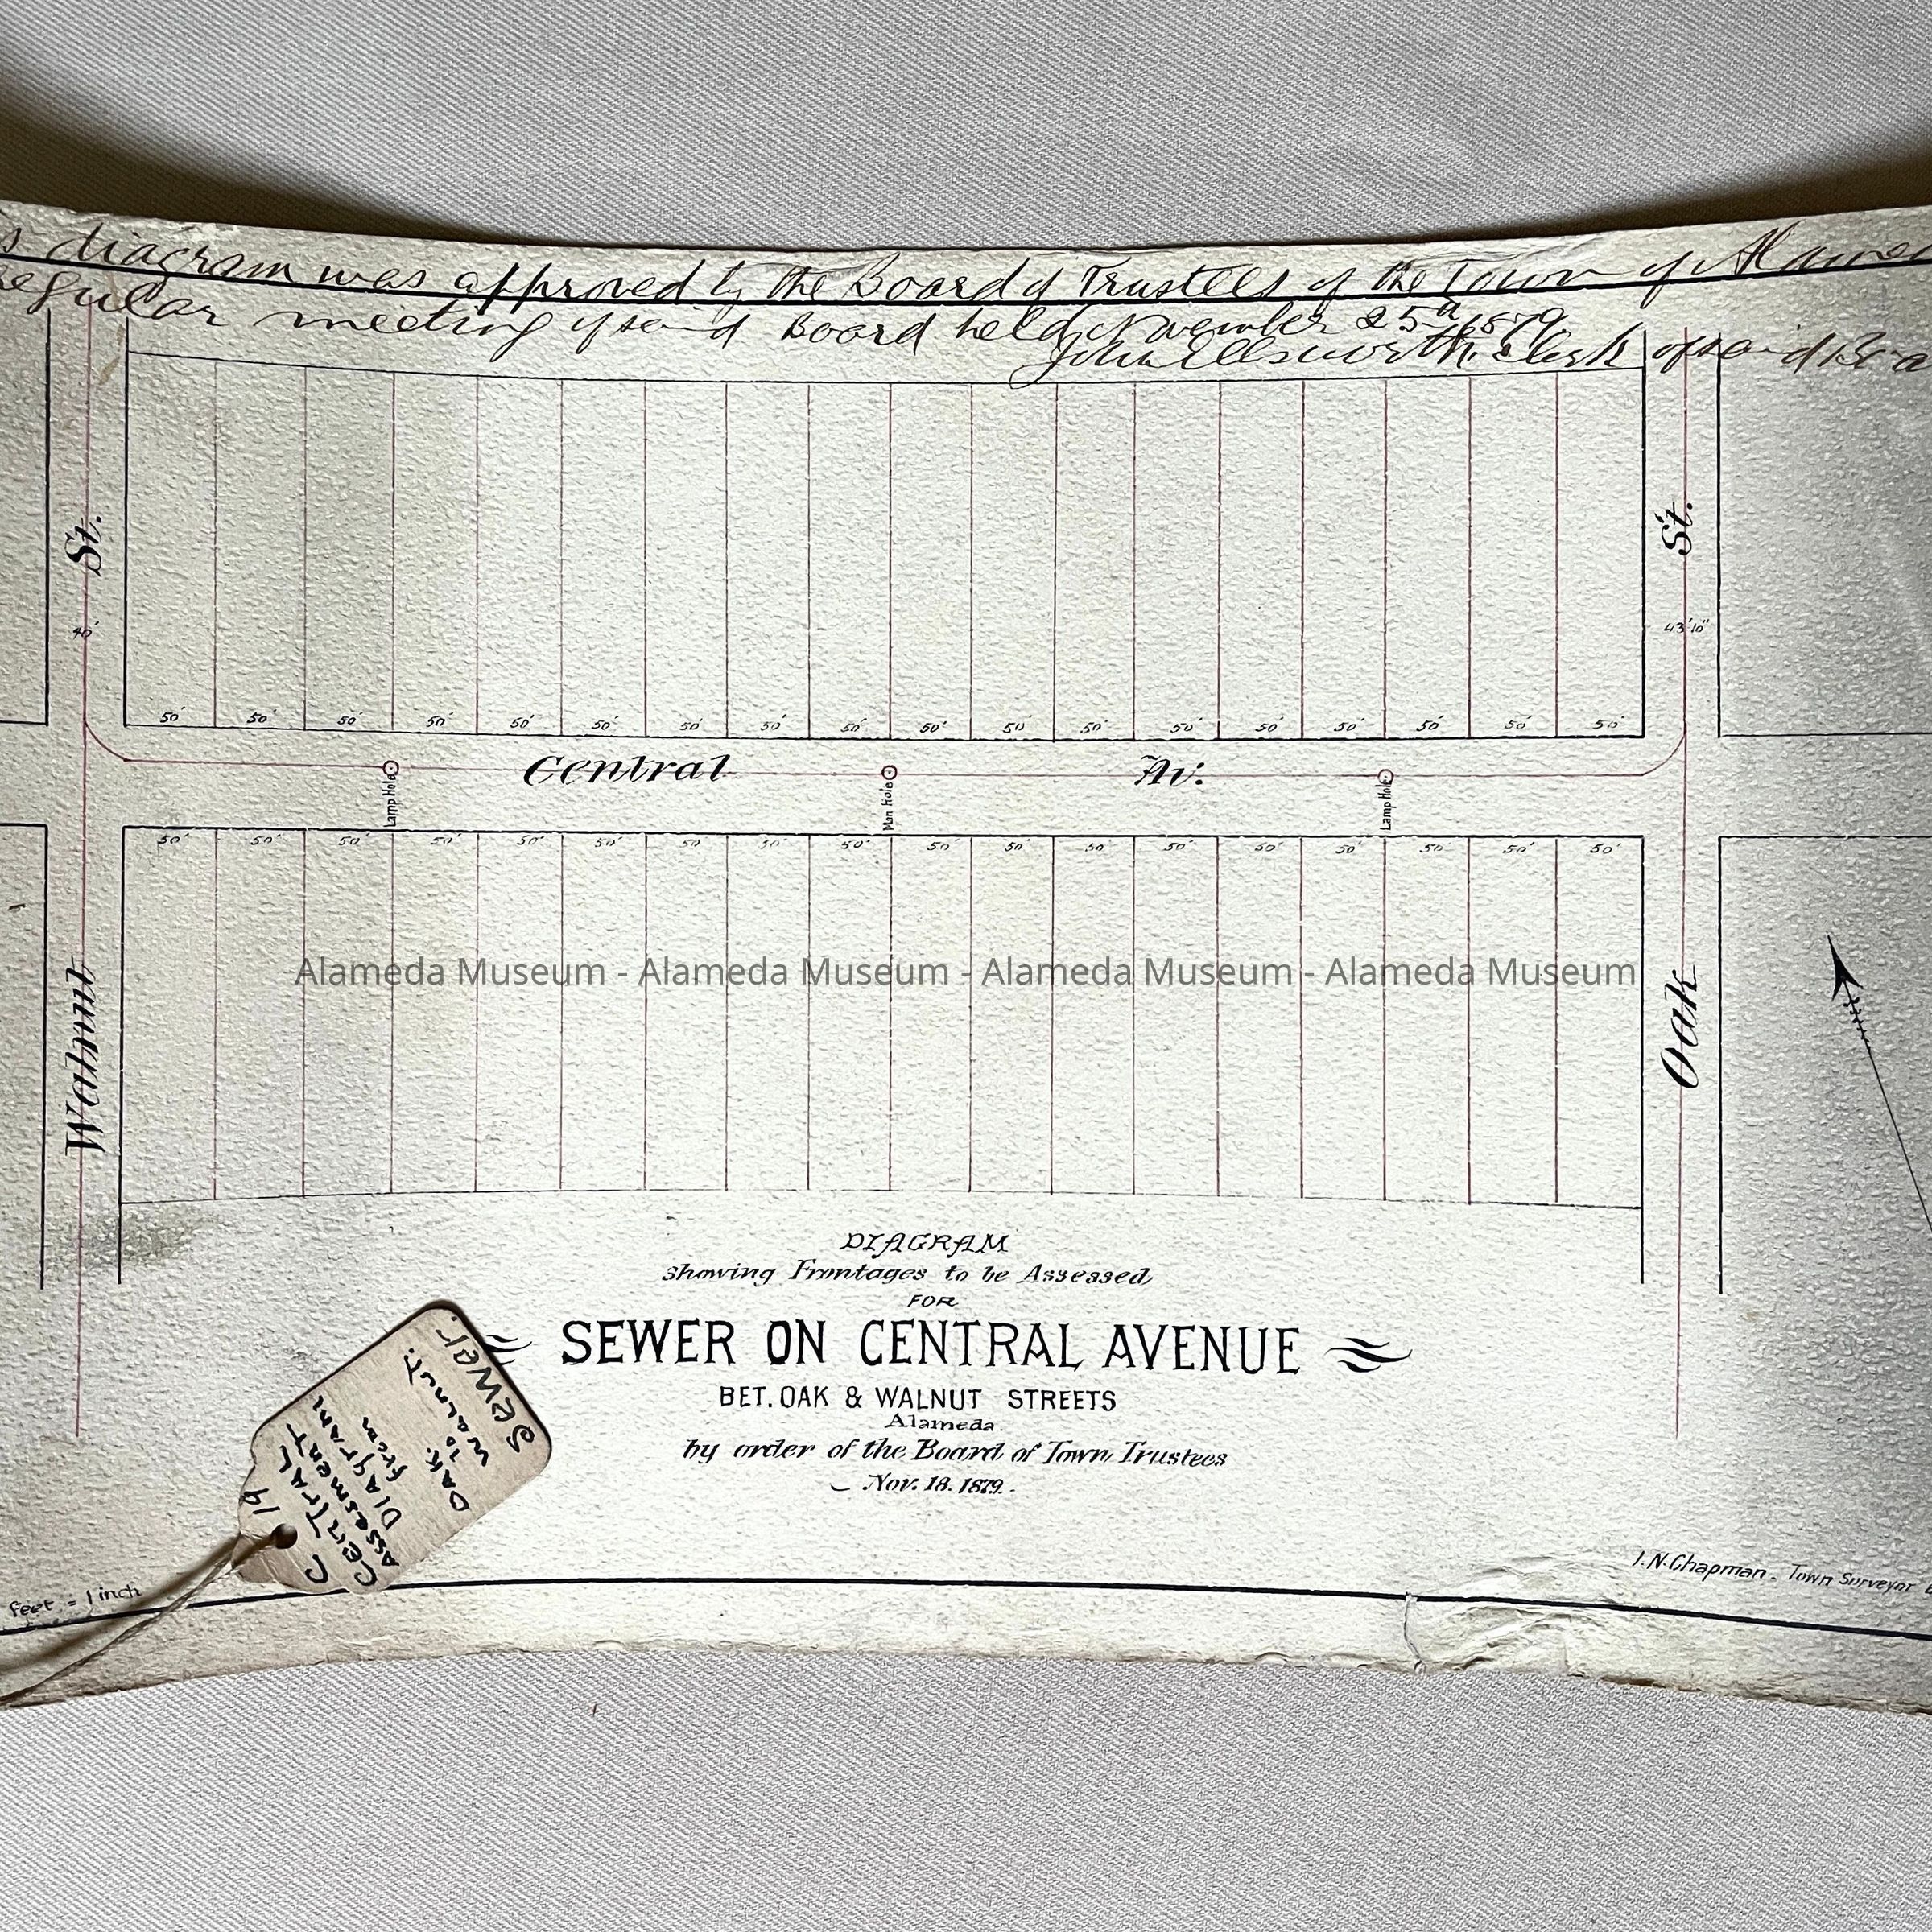 s diagram was approved by the Board of Trustees of the Town of Alame
regular meeting of said Board held November 25th 1879.
John Ellsworth. Clerk of said Boa
St.
St.
40'
43'10"
50' 50' 50' 50' 50' 50' 50' 50' 50' 50' 50' 50' 50' 50' 50' 50' 50' 50'
Central Av.
Lamp Hole
Man Hole
Lamp Hole
50' 50' 50' 50' 50' 50' 50 50' 50' 50' 50' 50 50' 50' 50' 50 50' 50'
Alameda Museum - Alameda Museum - Alameda Museum - Alameda Museum
Walnut
Oak
DIAGRAM
showing Frontages to be Assessed
FOR
SEWER ON CENTRAL AVENUE
BET. OAK & WALNUT STREETS
Alameda.
by order of the Board of Town Trustees
Nov. 18. 1879.
19
C
CENTRAL
Assesment
DIAgram
from
OAK. TO
WALNUT.
SEWER.
feet = 1 inch
I.N. Chapman. Town Surveyor